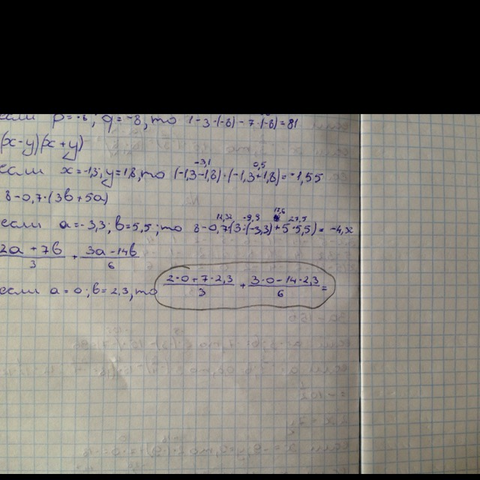 если p=-6; q=-8, то 1-3·(-8)-7·(-8)=81
(x-y)(x+y)
если x=-1,3; y=1,8, то (-1,3-1,8)·(-1,3+1,8)=-1,55
-3,1 0,5
8-0,7·(3b+5a)
если a=-3,3; b=5,5; то 8-0,7(3·(-3,3)+5·5,5)=
-9,9 17,6 27,5
2a+7b/3 + 3a-14b/6
если a=0; b=2,3, то 2·0+7·2,3/3 + 3·0-14·2,3/6 =